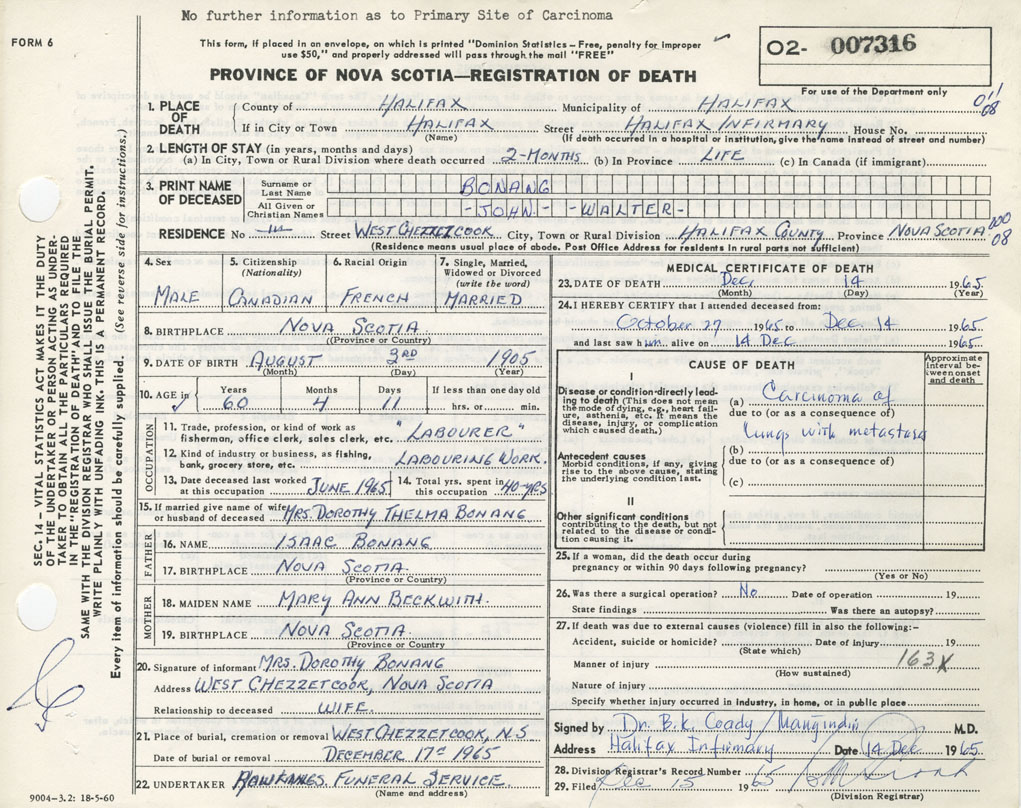 No further information as to Primary Site of Carcinoma
FORM 6
This form, if placed in an envelope, on which is printed "Dominion Statistics – Free, penalty for improper
use $50," and properly addressed will pass through the mail "FREE"
O2- 007316
For use of the Department only
PROVINCE OF NOVA SCOTIA—REGISTRATION OF DEATH
SEC. 14 – VITAL STATISTICS ACT MAKES IT THE DUTY
OF THE UNDERTAKER OR PERSON ACTING AS UNDER-
TAKER TO OBTAIN ALL THE PARTICULARS REQUIRED
IN THE "REGISTRATION OF DEATH" AND TO FILE THE
SAME WITH THE DIVISION REGISTRAR WHO SHALL ISSUE THE BURIAL PERMIT.
WRITE PLAINLY WITH UNFADING INK. THIS IS A PERMANENT RECORD.
Every item of information should be carefully supplied. (See reverse side for instructions.)
1. PLACE OF DEATH
County of HALIFAX Municipality of HALIFAX 011
08
If in City or Town HALIFAX Street HALIFAX INFIRMARY House No.
(Name) (If death occurred in a hospital or institution, give the name instead of street and number)
2. LENGTH OF STAY (in years, months and days)
(a) In City, Town or Rural Division where death occurred 2-MONTHS (b) In Province LIFE (c) In Canada (if immigrant)
3. PRINT NAME OF DECEASED
Surname or Last Name BONANG
All Given or Christian Names -JOHN- -WALTER-
RESIDENCE No Street WEST CHEZZETCOOK City, Town or Rural Division HALIFAX COUNTY Province NOVA SCOTIA 000
08
(Residence means usual place of abode. Post Office Address for residents in rural parts not sufficient)
4. Sex MALE
5. Citizenship (Nationality) CANADIAN
6. Racial Origin FRENCH
7. Single, Married, Widowed or Divorced (write the word) MARRIED
8. BIRTHPLACE NOVA SCOTIA
((Province or Country)
9. DATE OF BIRTH AUGUST 3RD 1905
(Month) (Day) (Year)
10. AGE in Years 60 Months 4 Days 11 If less than one day old hrs. or min.
OCCUPATION
11. Trade, profession, or kind of work as fisherman, office clerk, sales clerk, etc. "LABOURER"
12. Kind of industry or business, as fishing, bank, grocery store, etc. LABOURING WORK.
13. Date deceased last worked at this occupation JUNE 1965
14. Total yrs. spent in this occupation 40-YRS
15. If married give name of wife or husband of deceased MRS. DOROTHY THELMA BONANG
FATHER
16. NAME ISAAC BONANG
17. BIRTHPLACE NOVA SCOTIA.
(Province or Country)
MOTHER
18. MAIDEN NAME MARY ANN BECKWITH.
19. BIRTHPLACE NOVA SCOTIA.
(Province or Country
20. Signature of informant MRS. DOROTHY BONANG
Address WEST CHEZZETCOOK, NOVA SCOTIA
Relationship to deceased WIFE.
21. Place of burial, cremation or removal WEST CHEZZETCOOK, N.S
Date of burial or removal DECEMBER 17th 1965
22. UNDERTAKER FUNERAL SERVICE.
(Name and address)
9004-3.2: 18-5-60
MEDICAL CERTIFICATE OF DEATH
23. DATE OF DEATH Dec. 14 1965
(Month) (Day) (Year)
24. I HEREBY CERTIFY that I attended deceased from:
October 27 1965 to Dec. 14 1965
and last saw him alive on 14 Dec 1965
CAUSE OF DEATH
Approximate interval between onset and death
I
Disease or condition directly leading to death (This does not mean the mode of dying, e.g., heart failure, asthenia, etc. It means the disease, injury, or complication which caused death.)
(a) Carcinoma of
due to (or as a consequence of)
lungs with metastasis
Antecedent causes
Morbid conditions, if any, giving rise to the above cause, stating the underlying condition last.
(b)
due to (or as a consequence of)
(c)
II
Other significant conditions
contributing to the death, but not related to the disease or condition causing it.
25. If a woman, did the death occur during
pregnancy or within 90 days following pregnancy?
(Yes or No)
26. Was there a surgical operation? No Date of operation 19
State findings Was there an autopsy?
27. If death was due to external causes (violence) fill in also the following:–
Accident, suicide or homicide? Date of injury 19
(State which)
Manner of injury 163X
(How sustained)
Nature of injury
Specify whether injury occurred in industry, in home, or in public place
Signed by Dr. B.K. Coady / M.D.
Address Halifax Infirmary Date 14 Dec 1965
28. Division Registrar's Record Number
29. Filed Dec 15 1965
(Division Registrar)